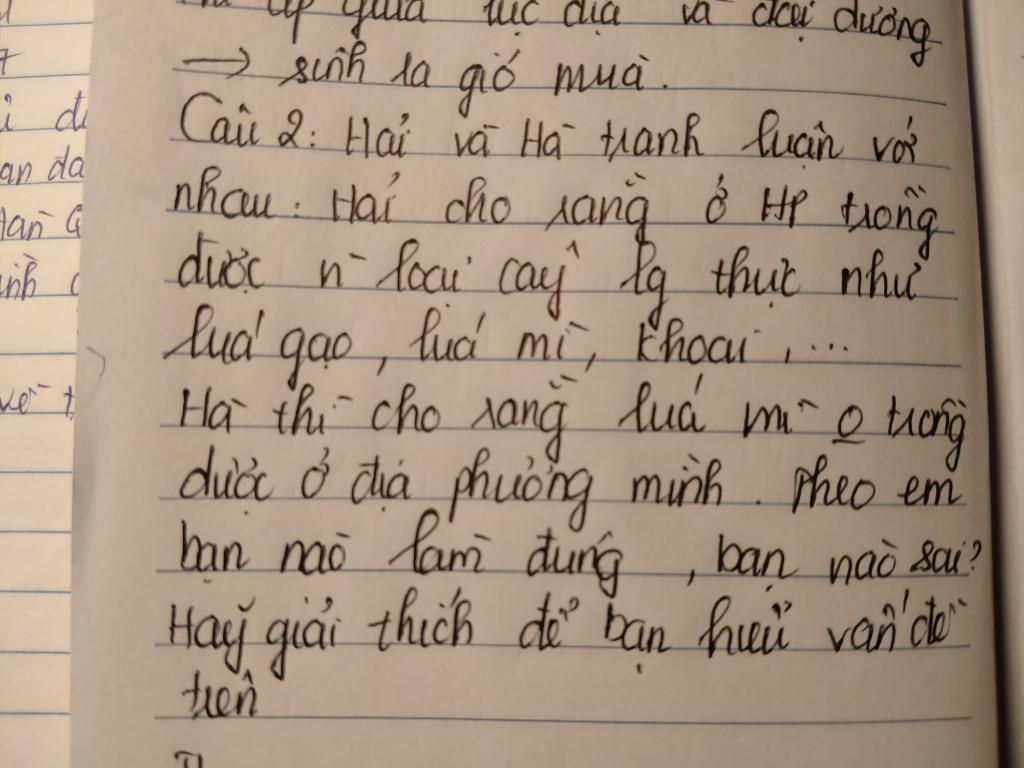 áp giữa lục địa và đại dương
→ sinh ra gió mùa.
Câu 2: Hải và Hà tranh luận với
nhau. Hải cho rằng ở HP trồng
được n̄ loại cây lg thực như
lúa gạo, lúa mì, khoai, ...
Hà thì cho rằng lúa mì o trồng
được ở địa phương mình. Theo em
bạn nào làm đúng, bạn nào sai?
Hãy giải thích để bạn hiểu vấn đề
trên